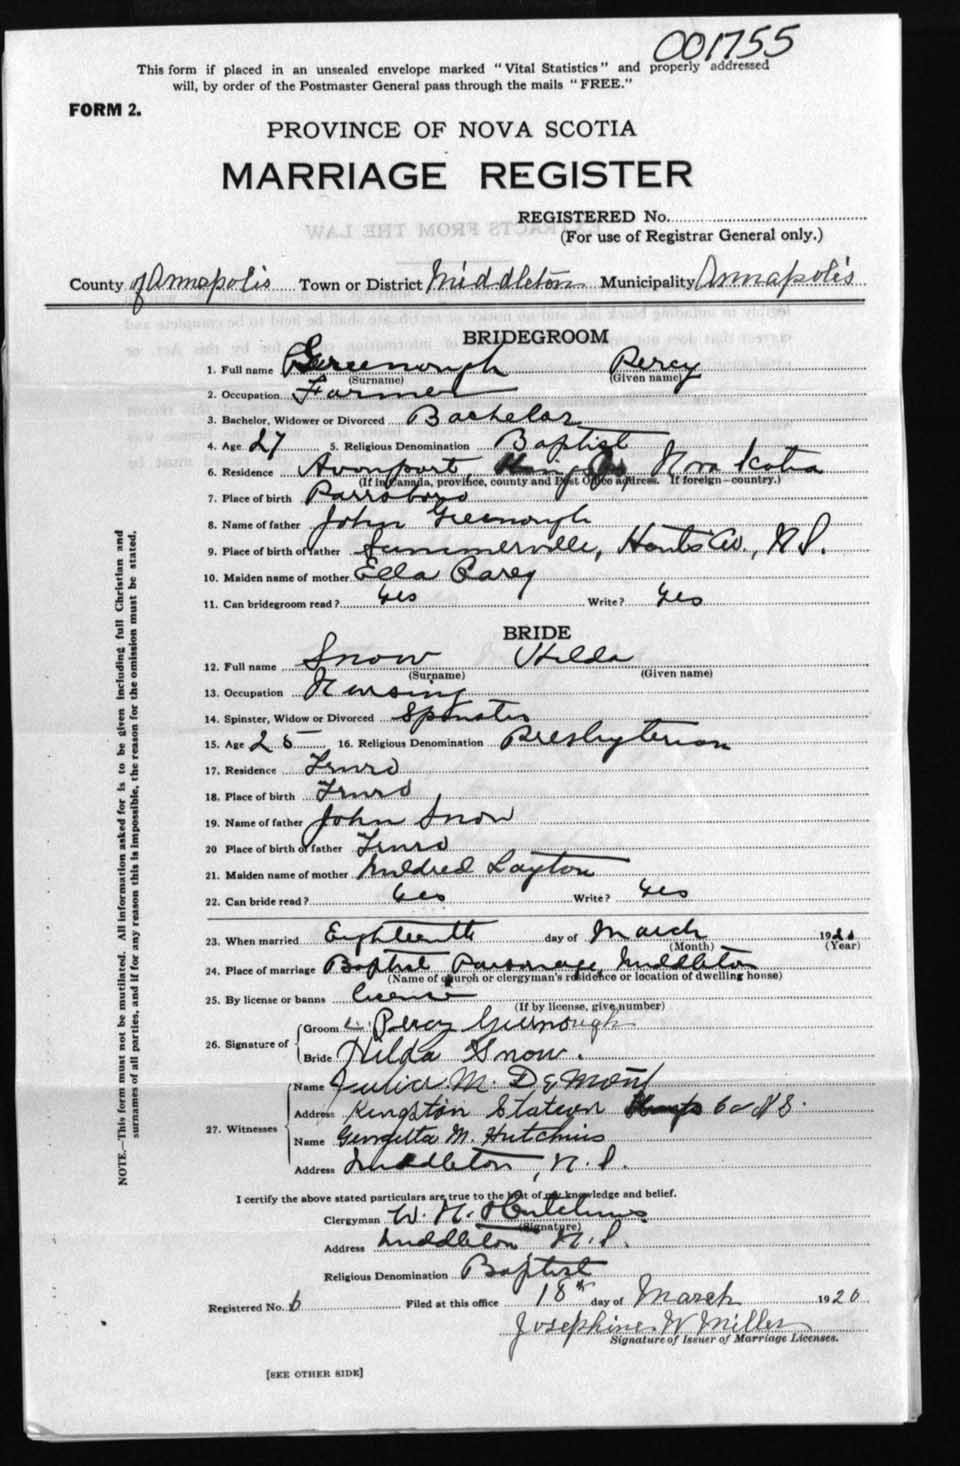 001755
This form if placed in an unsealed envelope marked "Vital Statistics" and properly addressed
will, by order of the Postmaster General pass through the mails "FREE."
FORM 2.
PROVINCE OF NOVA SCOTIA
MARRIAGE REGISTER
REGISTERED No.
(For use of Registrar General only.)
EXTRACTS FROM THE LAW
County of Annapolis Town or District Middleton Municipality Annapolis
BRIDEGROOM
1. Full name Greenough Percy
(Surname) (Given name)
2. Occupation Farmer
3. Bachelor, Widower or Divorced Bachelor
4. Age 27 5. Religious Denomination Baptist
6. Residence Avonport, Kings Co Nova Scotia
(If in Canada, province, county and Post Office address. If foreign—country.)
7. Place of birth Parrsboro
8. Name of father John Greenough
9. Place of birth of father Summerville, Hants Co., N.S.
10. Maiden name of mother Ella Carey
11. Can bridegroom read? Yes Write? Yes
BRIDE
12. Full name Snow Hilda
(Surname) (Given name)
13. Occupation Nursing
14. Spinster, Widow or Divorced Spinster
15. Age 25 16. Religious Denomination Presbyterian
17. Residence Truro
18. Place of birth Truro
19. Name of father John Snow
20 Place of birth of father Truro
21. Maiden name of mother Mildred Layton
22. Can bride read? Yes Write? Yes
23. When married Eighteenth day of March 1920
(Month) (Year)
24. Place of marriage Baptist Parsonage, Middleton
(Name of church or clergyman's residence or location of dwelling house)
25. By license or banns license
(If by license, give number)
26. Signature of
Groom Percy Greenough
Bride Hilda Snow.
27. Witnesses
Name Julia M. DeMont
Address Kingston Station Co N S.
Name Georgetta M. Hutchins
Address Middleton, N.S.
I certify the above stated particulars are true to the best of my knowledge and belief.
Clergyman W. H. Hutchins
(Signature)
Address Middleton N.S.
Religious Denomination Baptist
Registered No. 6 Filed at this office 18th day of March 1920
Josephine W Miller
Signature of Issuer of Marriage Licenses.
[SEE OTHER SIDE]
NOTE.—This form must not be mutilated. All information asked for is to be given including full Christian and
surnames of all parties, and if for any reason this is impossible, the reason for the omission must be stated.